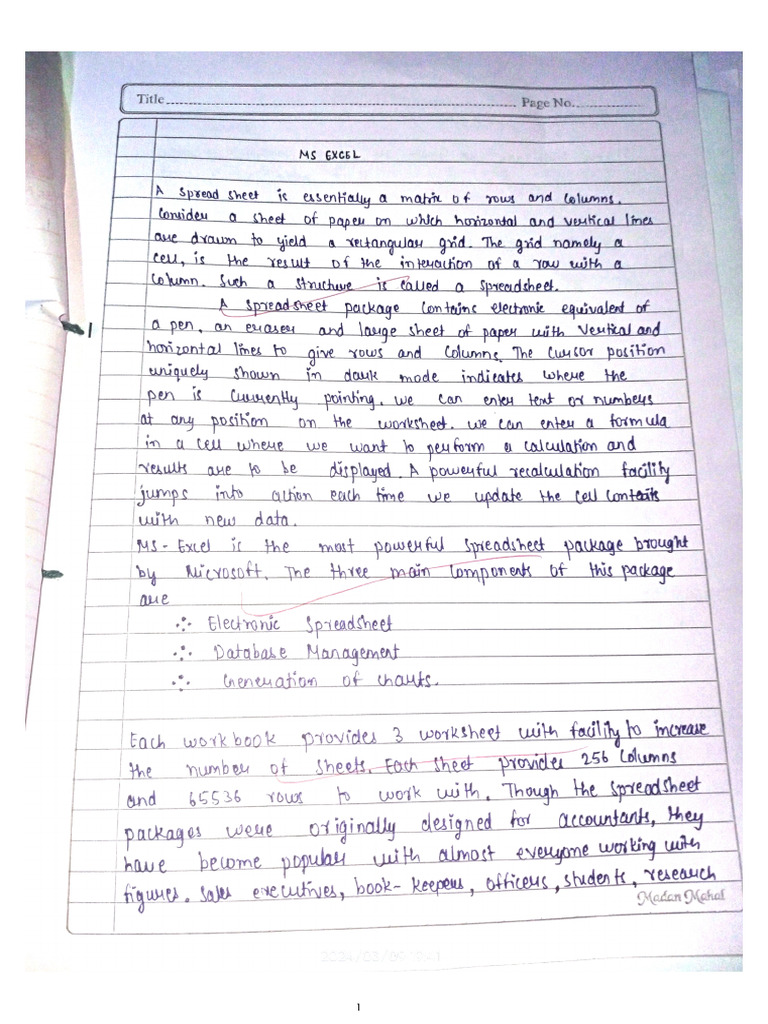 Title Page No.
MS EXCEL
A spread sheet is essentially a matrix of rows and columns.
Consider a sheet of paper on which horizontal and vertical lines
are drawn to yield a rectangular grid. The grid namely a
cell, is the result of the interaction of a row with a
column. Such a structure is called a spreadsheet.
A spreadsheet package contains electronic equivalent of
a pen, an eraser and large sheet of paper with vertical and
horizontal lines to give rows and columns. The cursor position
uniquely shown in dark mode indicates where the
pen is currently pointing. we can enter text or numbers
at any position on the worksheet. we can enter a formula
in a cell where we want to perform a calculation and
results are to be displayed. A powerful recalculation facility
jumps into action each time we update the cell contents
with new data.
MS-Excel is the most powerful spreadsheet package brought
by Microsoft. The three main components of this package
are
Electronic Spreadsheet
Database Management
Generation of charts.
Each workbook provides 3 worksheet with facility to increase
the number of sheets. Each sheet provides 256 columns
and 65536 rows to work with. Though the spreadsheet
packages were originally designed for accountants, they
have become popular with almost everyone working with
figures. Sales executives, book-keepers, officers, students, research
Madan Mahal
1